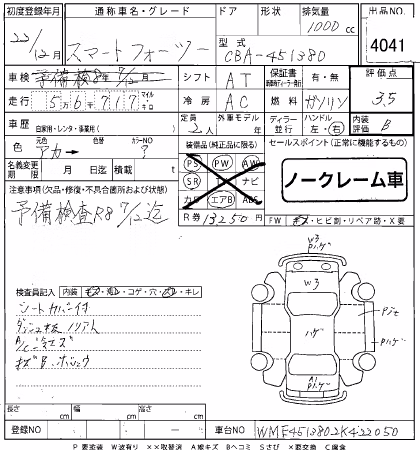 初度登録年月 通称車名・グレード ドア 形状 排気量 出品NO.
22/12月 スマートフォーツー 1000cc 4041
型式 CBA-451380
車検 予備検8年7/12月 シフト AT 保証書 有・無 評価点
走行 56767 マイル キロ 冷房 AC 燃料 ガソリン 3.5
車歴 自家用・レンタ・事業用( ) 定員 2人 外車モデル 年 ディーラー 並行 ハンドル 左・右 内装評価 B
元色 アカ 色替 カラーNO ? 装備品(純正品に限る) セールスポイント(正常に機能するもの)
名義変更期限 月 日迄 積載 t
PS PW AW
SR TV ナビ
カワ エアB ABS
ノークレーム車
注意事項(欠品・修復・不具合箇所および状態)
予備検査R8 7/12迄
R券 13250円 FW キズ・ヒビ割・リペア跡・X要
検査員記入 内装 キズ・汚レ・コゲ・穴・スレ・キレ
シートカバー付
ダッシュ板ノリアト
A/C冷エズ
キズB、ボシュウ
W3 Pハゲ
W3
ハゲ
Pハゲ
A1 Pハゲ
長さ cm 幅 cm 高さ cm
登録NO 車台NO WME4513802K422050
P要塗装 W波有り ××取替済 A線キズ Bヘコミ Sさび ×要交換 C腐食